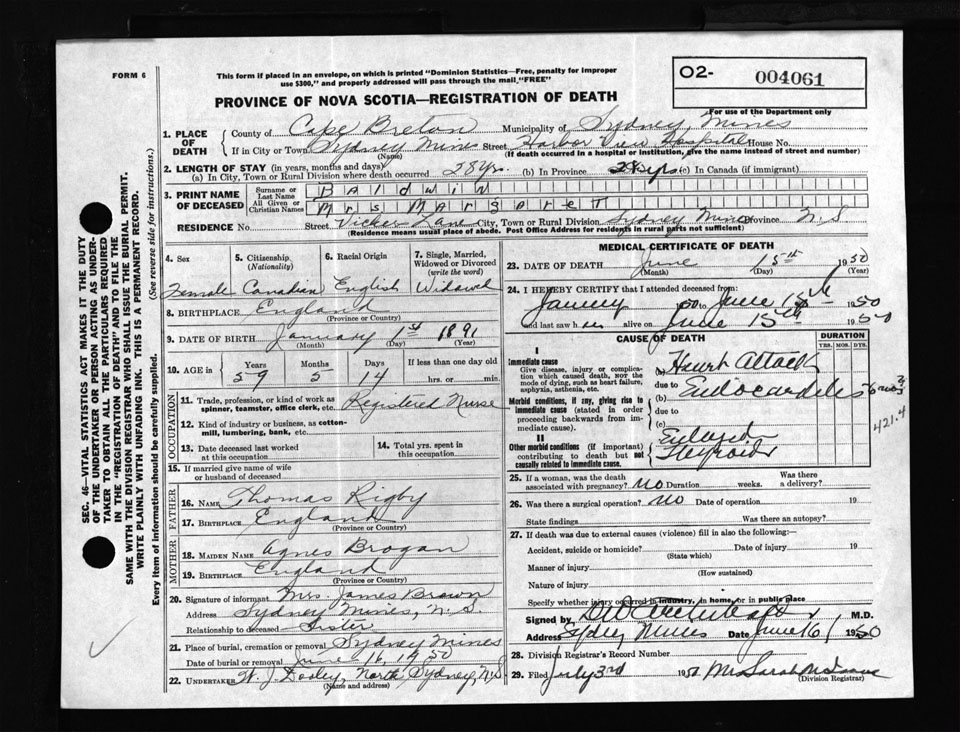 FORM 6
This form if placed in an envelope, on which is printed "Dominion Statistics—Free, penalty for improper
use $300," and properly addressed will pass through the mail, "FREE"
O2- 004061
PROVINCE OF NOVA SCOTIA—REGISTRATION OF DEATH
For use of the Department only
1. PLACE OF DEATH
County of Cape Breton Municipality of Sydney Mines
If in City or Town Sydney Mines Street Harbor View Hospital House No.
(Name) (If death occurred in a hospital or institution, give the name instead of street and number)
2. LENGTH OF STAY (in years, months and days)
(a) In City, Town or Rural Division where death occurred 28 yrs. (b) In Province 28 yrs (c) In Canada (if immigrant)
3. PRINT NAME OF DECEASED
Surname or Last Name Baldwin
All Given or Christian Names Mrs Margaret
RESIDENCE No. Street Vicker Lane City, Town or Rural Division Sydney Mines Province N.S.
(Residence means usual place of abode. Post Office Address for residents in rural parts not sufficient)
4. Sex
Female
5. Citizenship
(Nationality)
Canadian
6. Racial Origin
English
7. Single, Married,
Widowed or Divorced
(write the word)
Widowed
8. BIRTHPLACE England
(Province or Country)
9. DATE OF BIRTH January 1st 1891
(Month) (Day) (Year)
10. AGE in
Years Months Days If less than one day old
59 5 14 hrs. or min.
OCCUPATION
11. Trade, profession, or kind of work as
spinner, teamster, office clerk, etc. Registered Nurse
12. Kind of industry or business, as cotton-
mill, lumbering, bank, etc.
13. Date deceased last worked
at this occupation
14. Total yrs. spent in
this occupation
15. If married give name of wife
or husband of deceased
FATHER
16. NAME Thomas Rigby
17. BIRTHPLACE England
(Province or Country)
MOTHER
18. MAIDEN NAME Agnes Brogan
19. BIRTHPLACE England
(Province or Country)
20. Signature of informant Mrs. James Brown
Address Sydney Mines, N.S.
Relationship to deceased Sister
21. Place of burial, cremation or removal Sydney Mines
Date of burial or removal June 16, 1950
22. UNDERTAKER W. J. Dooley, North Sydney, N.S.
(Name and address)
MEDICAL CERTIFICATE OF DEATH
23. DATE OF DEATH June 15th 1950
(Month) (Day) (Year)
24. I HEREBY CERTIFY that I attended deceased from:
January 50 to June 15th 1950
and last saw her alive on June 15th 1950
CAUSE OF DEATH
DURATION
YRS. MOS. DYS.
I
Immediate cause
Give disease, injury or complica-
tion which caused death, not the
mode of dying, such as heart failure,
asphyxia, asthenia, etc.
(a) Heart Attack
due to
Morbid conditions, if any, giving rise to
immediate cause (stated in order
proceeding backwards from im-
mediate cause).
(b) Endocarditis 6 mos
due to
(c)
421.4
II
Other morbid conditions (if important)
contributing to death but not
causally related to immediate cause.
Enlarged
Thyroid
25. If a woman, was the death
associated with pregnancy? no Duration weeks. Was there
a delivery?
26. Was there a surgical operation? no Date of operation 19
State findings Was there an autopsy?
27. If death was due to external causes (violence) fill in also the following:—
Accident, suicide or homicide? Date of injury 19
(State which)
Manner of injury
(How sustained)
Nature of injury
Specify whether injury occurred in industry, in home, or in public place
Signed by M.D.
Address Sydney Mines Date June 16 1950
28. Division Registrar's Record Number
29. Filed July 3rd 1950 Mrs Sarah
(Division Registrar)
SEC. 46—VITAL STATISTICS ACT MAKES IT THE DUTY
OF THE UNDERTAKER OR PERSON ACTING AS UNDER-
TAKER TO OBTAIN ALL THE PARTICULARS REQUIRED
IN THE "REGISTRATION OF DEATH" AND TO FILE THE
SAME WITH THE DIVISION REGISTRAR WHO SHALL ISSUE THE BURIAL PERMIT.
WRITE PLAINLY WITH UNFADING INK. THIS IS A PERMANENT RECORD.
Every item of information should be carefully supplied. (See reverse side for instructions.)